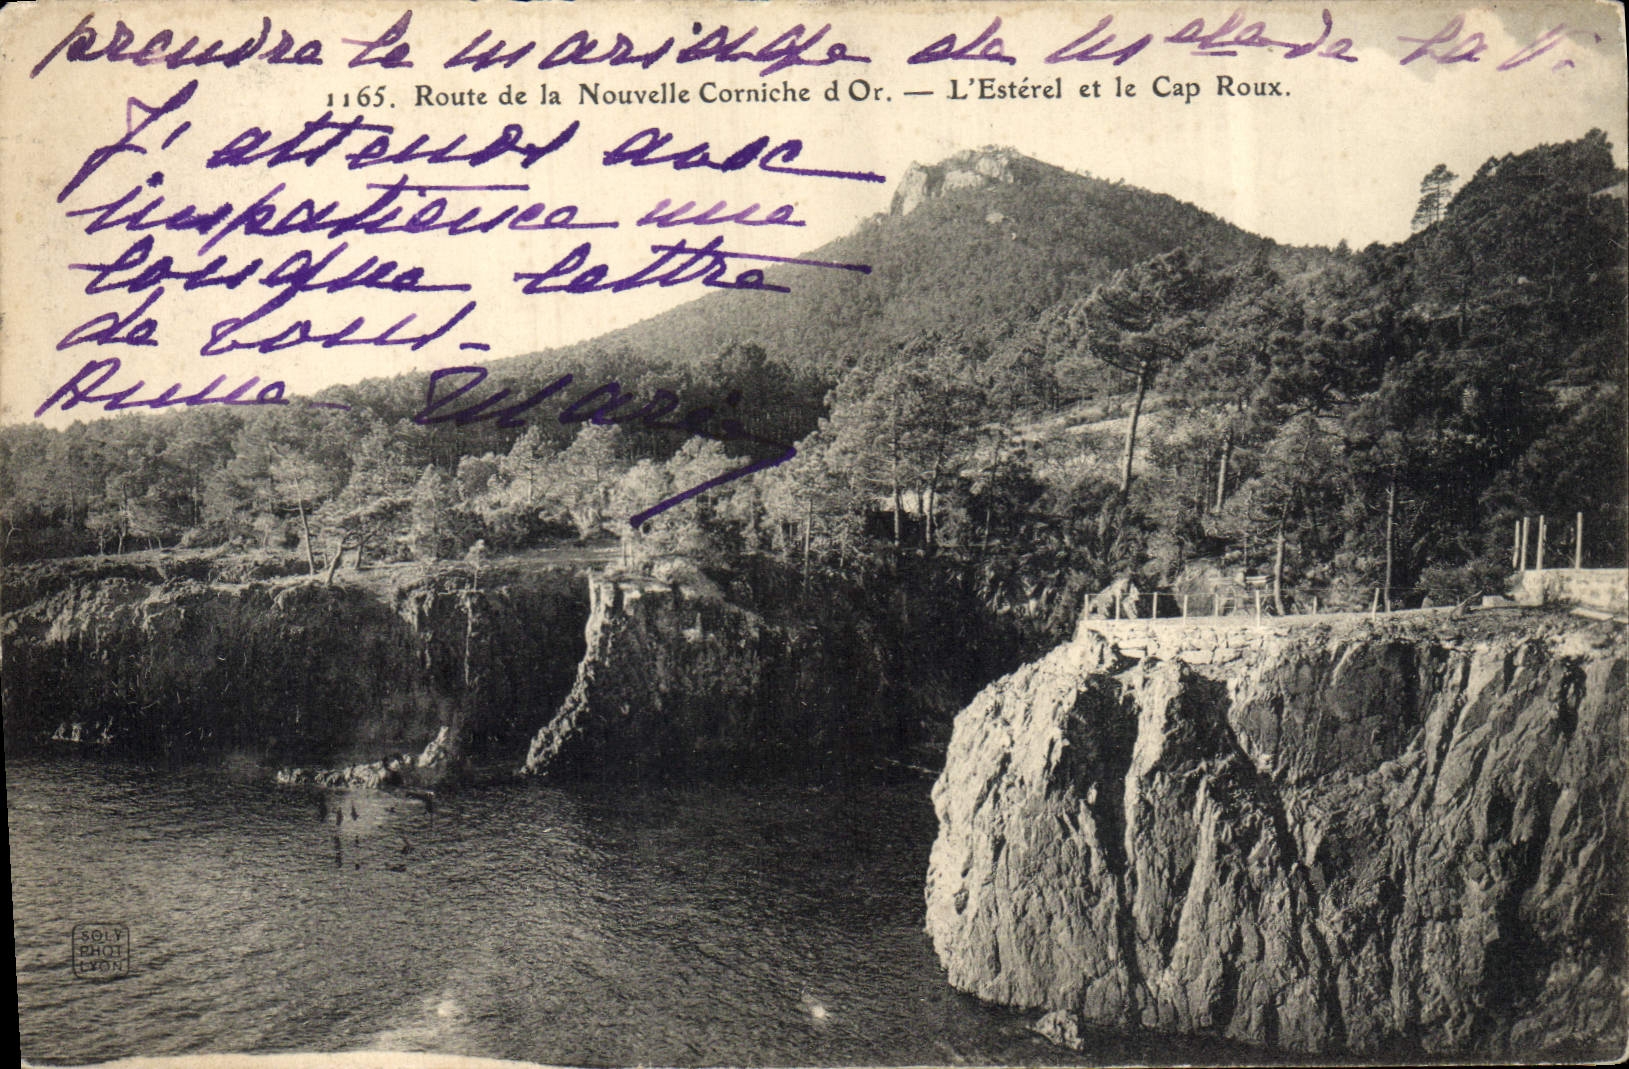 prendre le mariage de Melle de la V.
1165. Route de la Nouvelle Corniche d'Or. — L'Estérel et le Cap Roux.
J'attends avec
impatience une
longue lettre
de vous.
Anne Marie
SOLY
PHOT
LYON